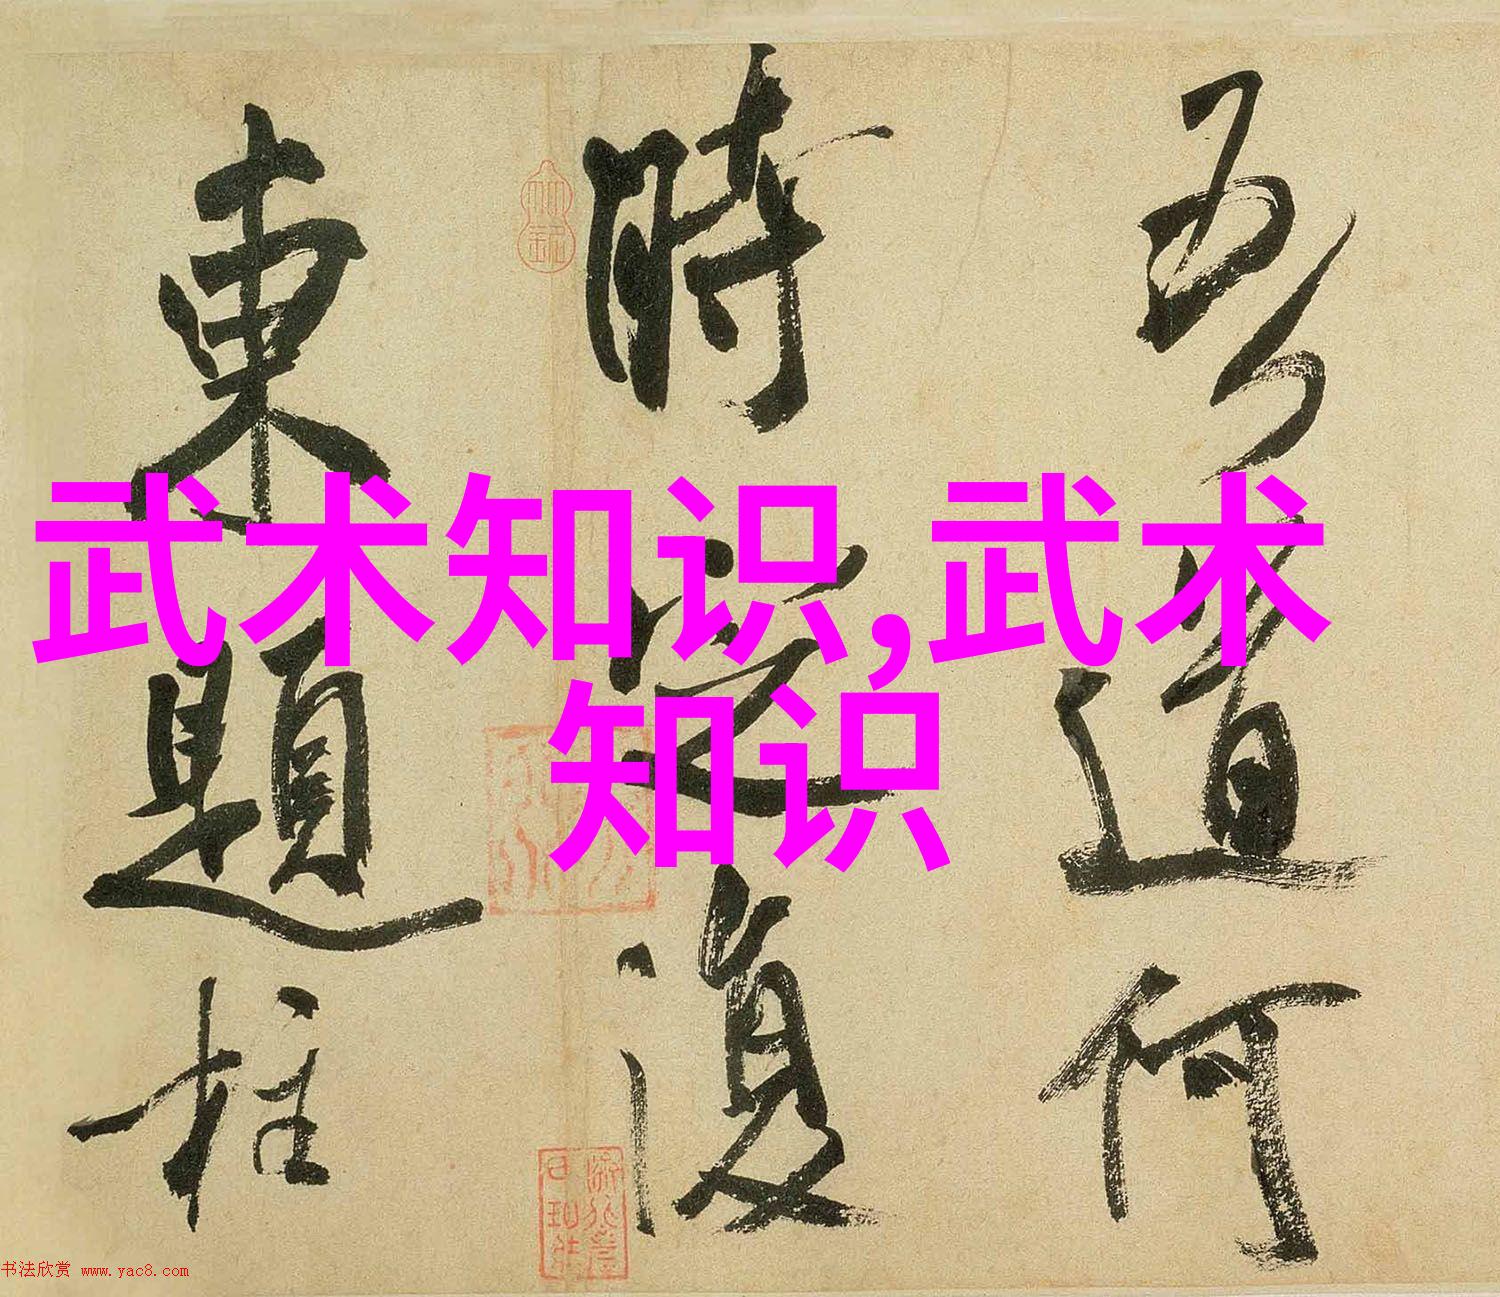 武术知识,武术
知识
吾道何
時定復
東題柱
书法欣赏 www.yac8.com